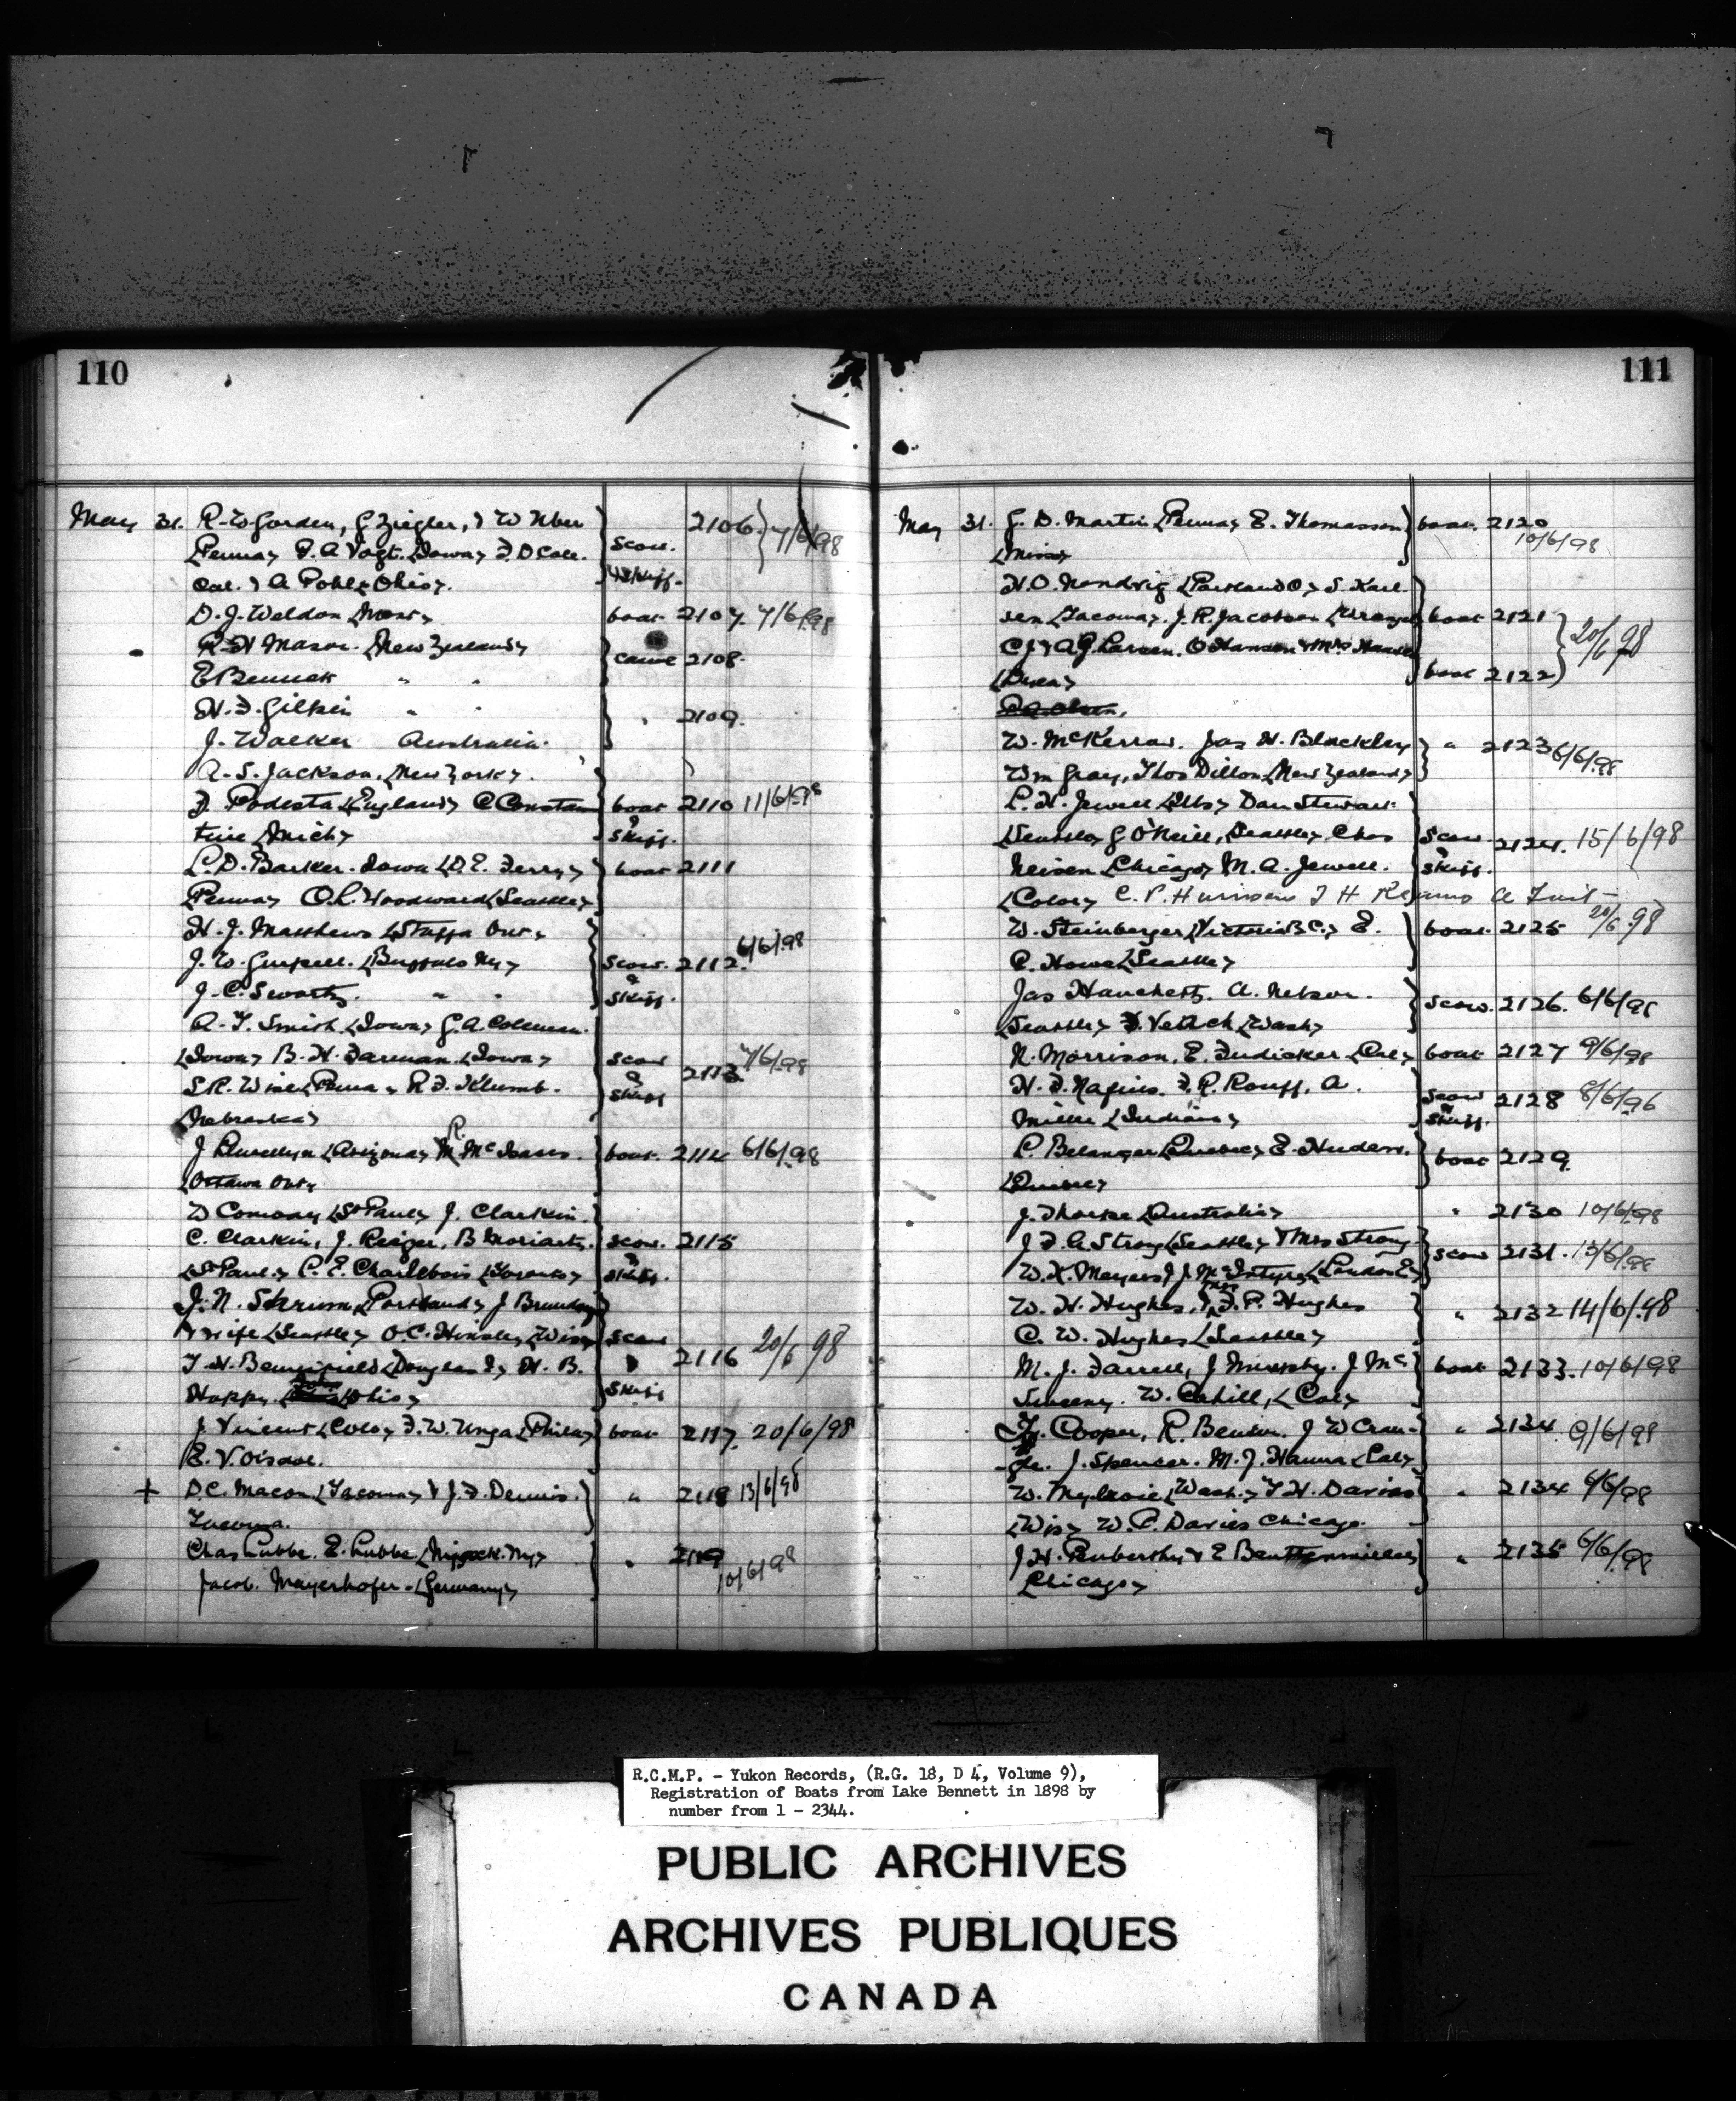 110
May 31. R. W. Gorden, G Ziegler, & W Uber 2106. 7/6/98
(Penna) F. A Vogt. (Iowa) F. D Cole. scow.
Cal. & A Pohl (Ohio). & skiff.
D. J. Weldon (Mont) boat 2107. 7/6/98
R H Mason. (New Zealand) canoe 2108.
E Bennett " "
H. F. Gilkin " " " 2109.
J. Walker Australia.
A. S. Jackson. (New York).
F. Podesta (England) C Constan boat 2110 11/6/98
tine (Mich) & skiff.
L. D. Barker. Iowa (D. E. Ferry) boat 2111
(Penna) O. L. Woodward (Seattle)
H. J. Matthews (Staffa Ont)
J. W. Guspell. (Buffalo Ny) scow. 2112. 6/6/98
J. C. Swartz. " " & skiff.
A. T. Smith (Iowa) G. A. Coleman.
(Iowa) B. H. Farman (Iowa) scow 2113. 7/6/98
S R. Wise (Penna) R. F. Klumb. & skiff
(Nebraska)
J Llewellyn (Arizona) R. McIsaacs. boat. 2114 6/6/98
(Ottawa Ont)
W Conway (St Paul) J. Clarkin.
C. Clarkin, J. Reiger, B Moriarty. scow. 2115
(St Paul) P. E. Charlebois (Toronto) & skiff.
J. N. Shrum (Portland) J Brunday
& wife (Seattle) O. C. Hinsley (Wis) scow
T. H. Bensfield (Douglas I) H. B. & 2116 20/6/98
Happy. (Ohio) skiff
J. Vincent (Colo) F. W. Unga (Phila) boat 2117. 20/6/98
E. V. Oisove.
+ D. C. Macon (Tacoma) & J. F. Dennis. " 2118 13/6/98
Tacoma.
Chas Lubbe. E. Lubbe (Ny) " 2119
Jacob. Mayerhofer. (Germany) 10/6/98
111
May 31. G. D. Martin (Penna) E. Thomasson boat. 2120
(Minn) 10/6/98
H. O. Nendvig (Parkland O) S. Karl.
sen (Tacoma). J. R. Jacobsen (Wrangel boat 2121 20/6/98
C J & A G. Larsen. O Hansen & Mrs Hansen
(Dyea) boat 2122
P. A. Olsen,
W. McKerrow. Jas H. Blackley " 2123 6/6/98
Wm Gray, Thos Dillon (New Zealand)
L. H. Jewell (Ills) Dan Stewart
(Seattle) G O'Neill, (Seattle) Chas scow. 2124. 15/6/98
Neisen (Chicago) M. A. Jewell. & skiff.
(Colo) C. P. Harrison T H A Tait
W. Steinberger (Victoria B C.) E. boat 2125 20/6/98
C. Howe (Seattle)
Jas Hanchett. A. Nelson. scow. 2126. 6/6/98
(Seattle) F. Veitch (Wash)
N. Morrison, E. Fudicker (Cal) boat 2127 9/6/98
H. F. Nafius. F. R. Rouff, A. scow 2128 8/6/96
Miller (Indiana) & skiff.
P. Belanger (Quebec) E. Hudon. boat 2129.
(Quebec)
J. Thorpe (Australia) " 2130 10/6/98
J. F. G. Strong (Seattle) & Mrs Strong. scow 2131. 13/6/98
W. K. Meyers & J. McIntyre (London E)
W. H. Hughes, & Mrs F. P. Hughes " 2132 14/6/98
C. W. Hughes (Seattle)
M. J. Farrell, J Murphy. J Mc boat 2133. 10/6/98
Sweeny. W. Cahill, (Cal)
Cooper, R. Benton. J W Cran- " 2134 9/6/98
J. Spencer. M. J. Hanna (Cal)
W. Mylroie (Wash.) T H. Davies " 2134 6/6/98
(Wis) W. P. Davies Chicago.
J. H. Penberthy & E Beuttenmiller " 2135 6/6/98
(Chicago)
R.C.M.P. - Yukon Records, (R.G. 18, D 4, Volume 9),
Registration of Boats from Lake Bennett in 1898 by
number from 1 - 2344.
PUBLIC ARCHIVES
ARCHIVES PUBLIQUES
CANADA